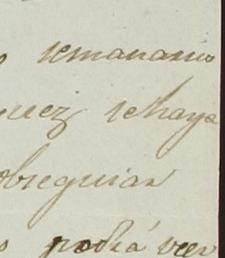 semanario
uez se haya
obsequiar
podrá ver